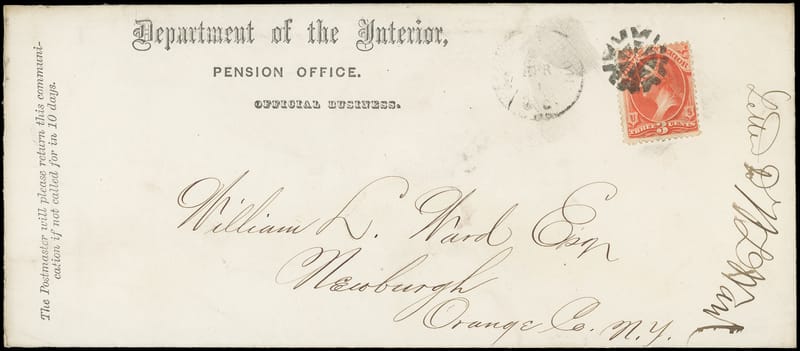 Department of the Interior,
PENSION OFFICE.
OFFICIAL BUSINESS.
The Postmaster will please return this communi-
cation if not called for in 10 days.
APR
U S
THREE 3 CENTS
William L. Ward Esq
Newburgh
Orange Co. N.Y.